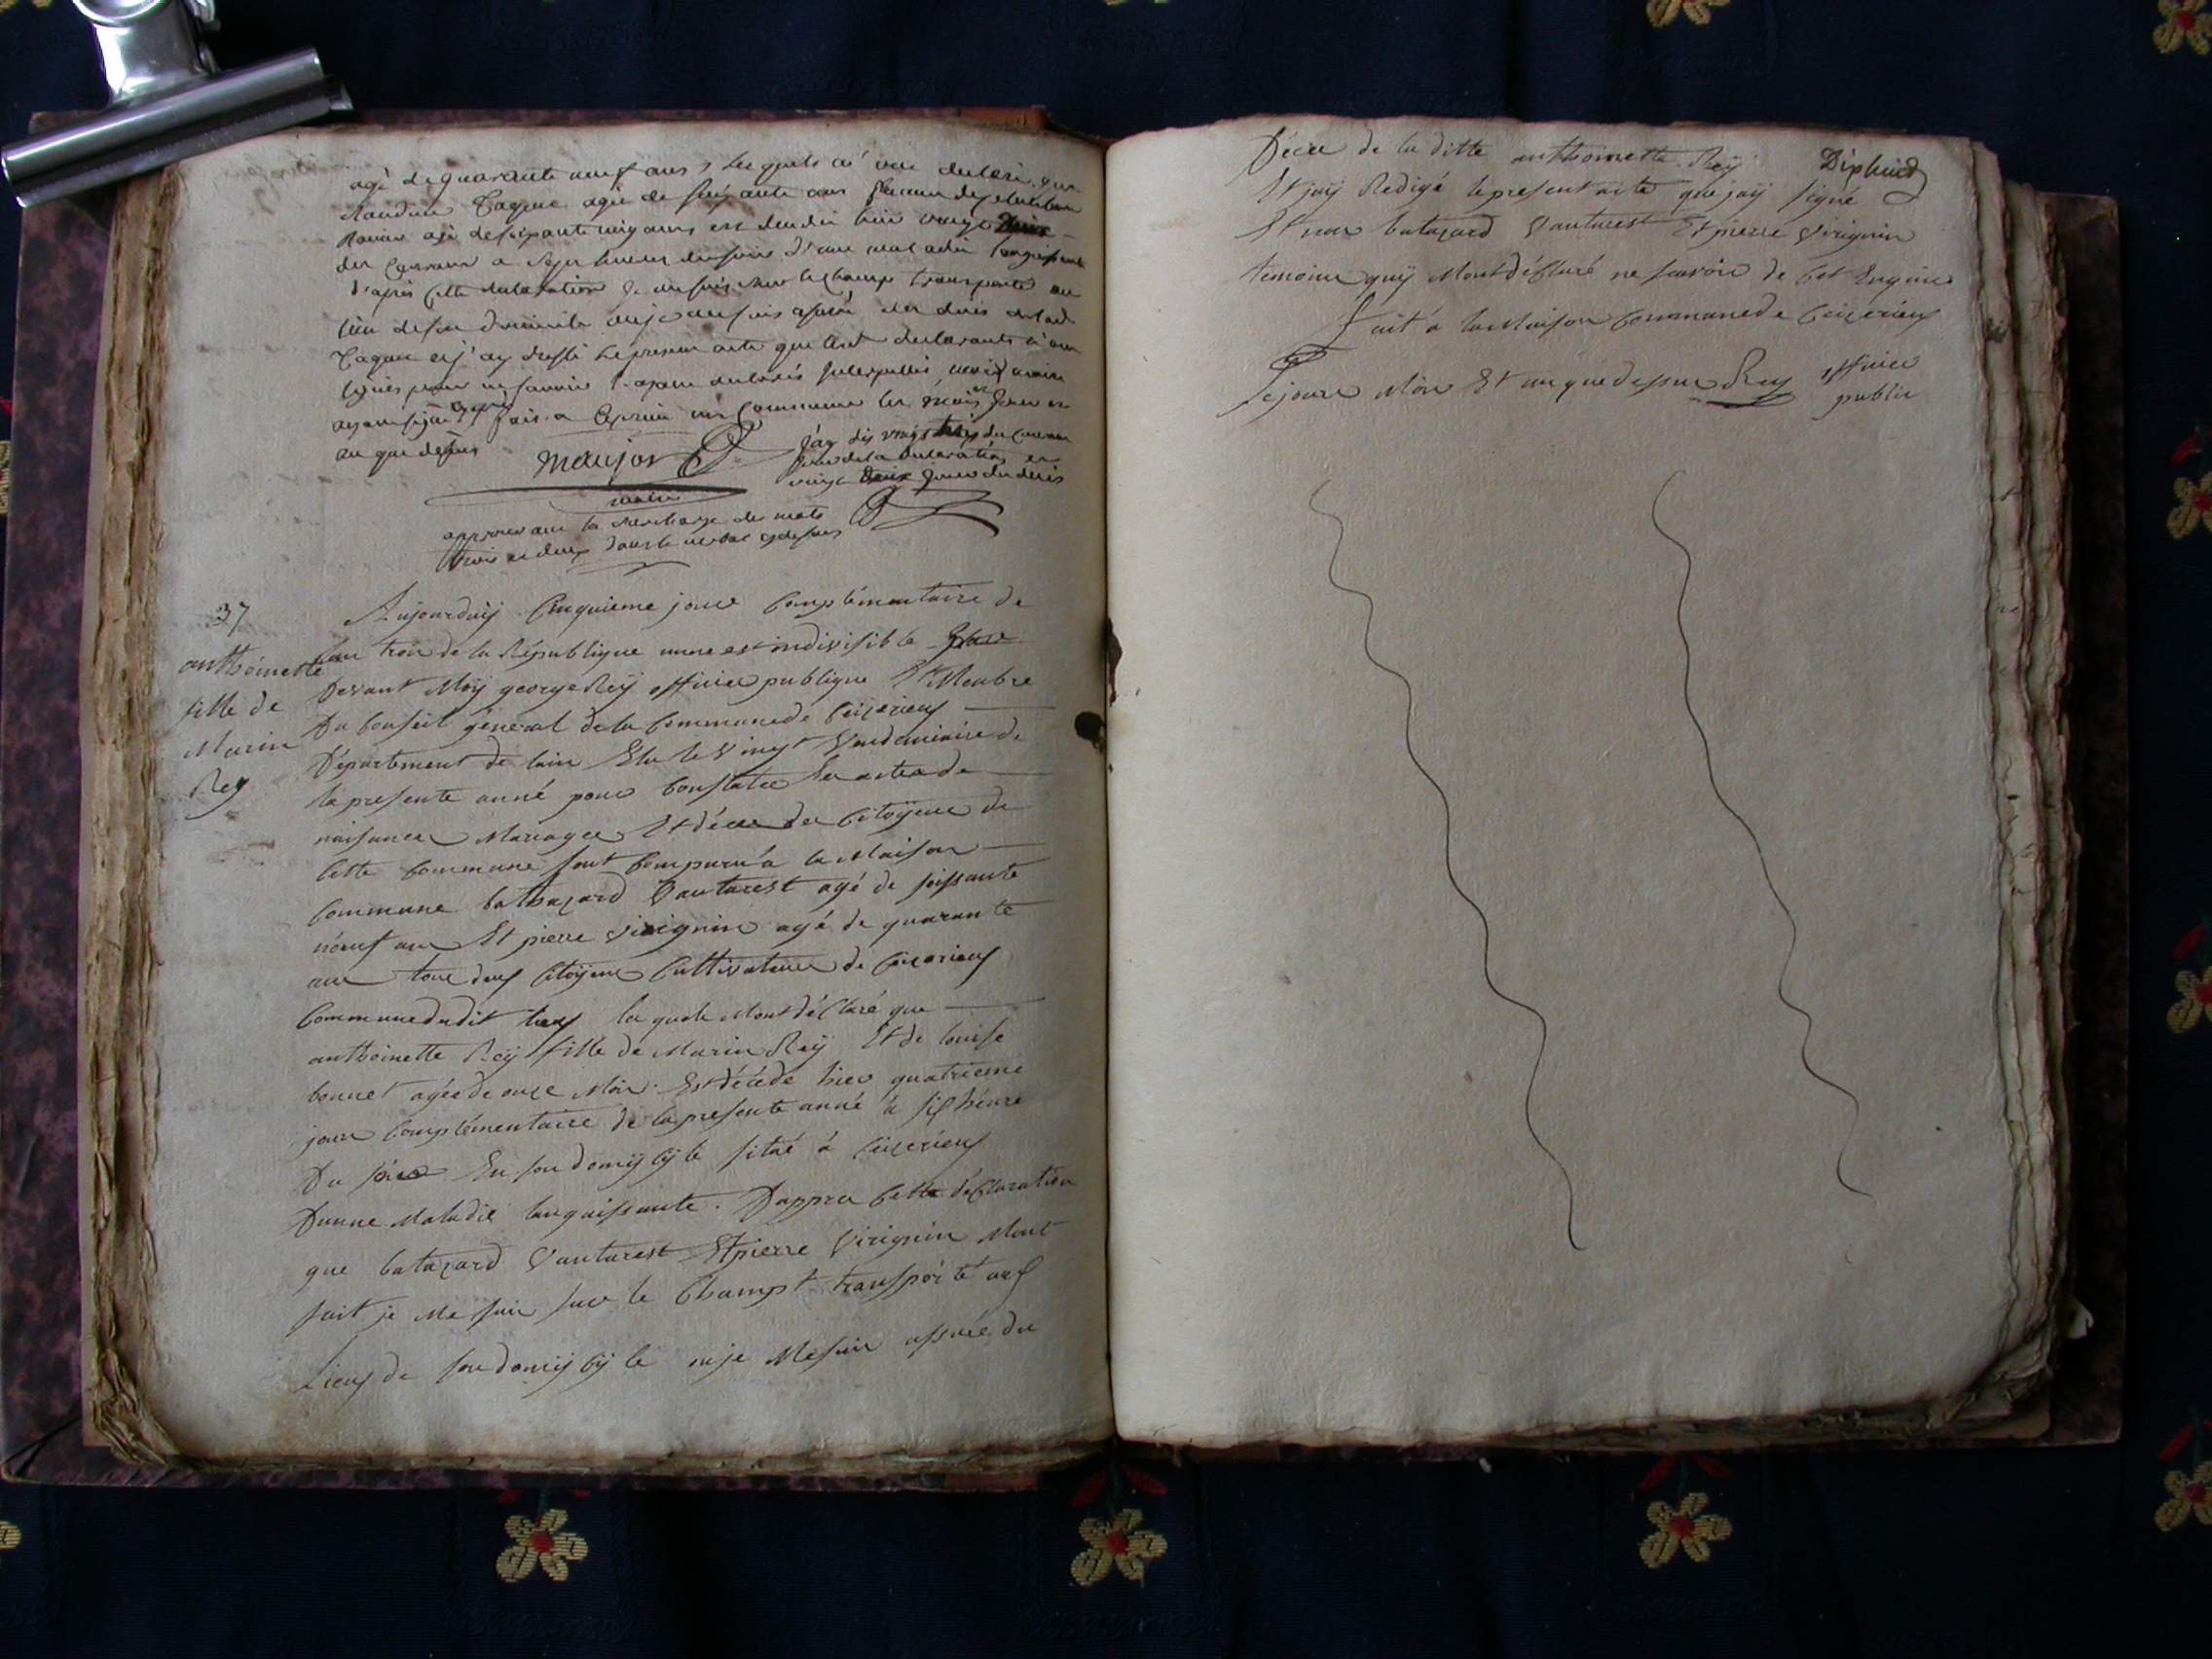 agé de quarante neuf ans, lesquels m'ont déclaré que
Claudine agée de soixante ans femme de
agé de soixante cinq ans est décédée hier vingt deux
du courant a sept heures du soir d'une maladie languissante
d'après cette déclaration je me suis sur le champ transporté au
lieu de son domicile ou je me suis assuré du décès de lad.
et j'ay dressé le present acte que lesd. declarants n'ont
signés pour ne savoir
fait a en commune les mois jour et
an que dessus
maujor
maire
j'ay dis vingt trois du courant
jour de la declaration et
vingt deux jour du décès
approuvant la surcharge des mots
trois et deux dans le verbal cy dessus
37
anthoinette
fille de
Marin
Rey
Aujourduij Cinquieme jour Complémentaire de
lan trois de la République unne est indivisible
Devant Moÿ george Reÿ officier publique Et Menbre
Du Conseil géneral de la Commune de Ceizerieuf
Département de lain Elu le Vingt Vandemiaire de
la presente anné pour Constater les actes de
naisances Mariages Et déces des Citoÿens de
Cette Commune sont Comparu a la Maison
Commune bathazard Vautarest agé de soissante
nœuf ans Et pierre Virignin agé de quarante
ans tous deuf Citoÿens Cultivateurs de Ceizerieuf
Commune dudit lieuf la quele Mont déClaré que
anthoinette Reÿ fille de Marin Reÿ Et de louise
bonnet agée de onze Mois Est décédé hier quatrieme
jour Complémentaire de la presente anné à sif héure
Du soire En son domijcijle situé à Ceizerieuf
Dunne Maladie languissante. Dappres Cette déClaration
que batazard Vautarest Et pierre Virignin Mont
fait je Me suis sur le Champt transporté auf
Lieuf de son domijcijle ou je Me suis assuré du
Déces de la ditte anthoinette Reÿ
Et jaÿ Redigé le present acte que jaÿ signé
Et non batazard Vautarest Et pierre Virignin
temoins quÿ Mont déClaré ne savoir de Cet Enquis
Fait à la Maison Commune de Ceizerieuf
le jour Mois Et an que dessus Rey officier
public